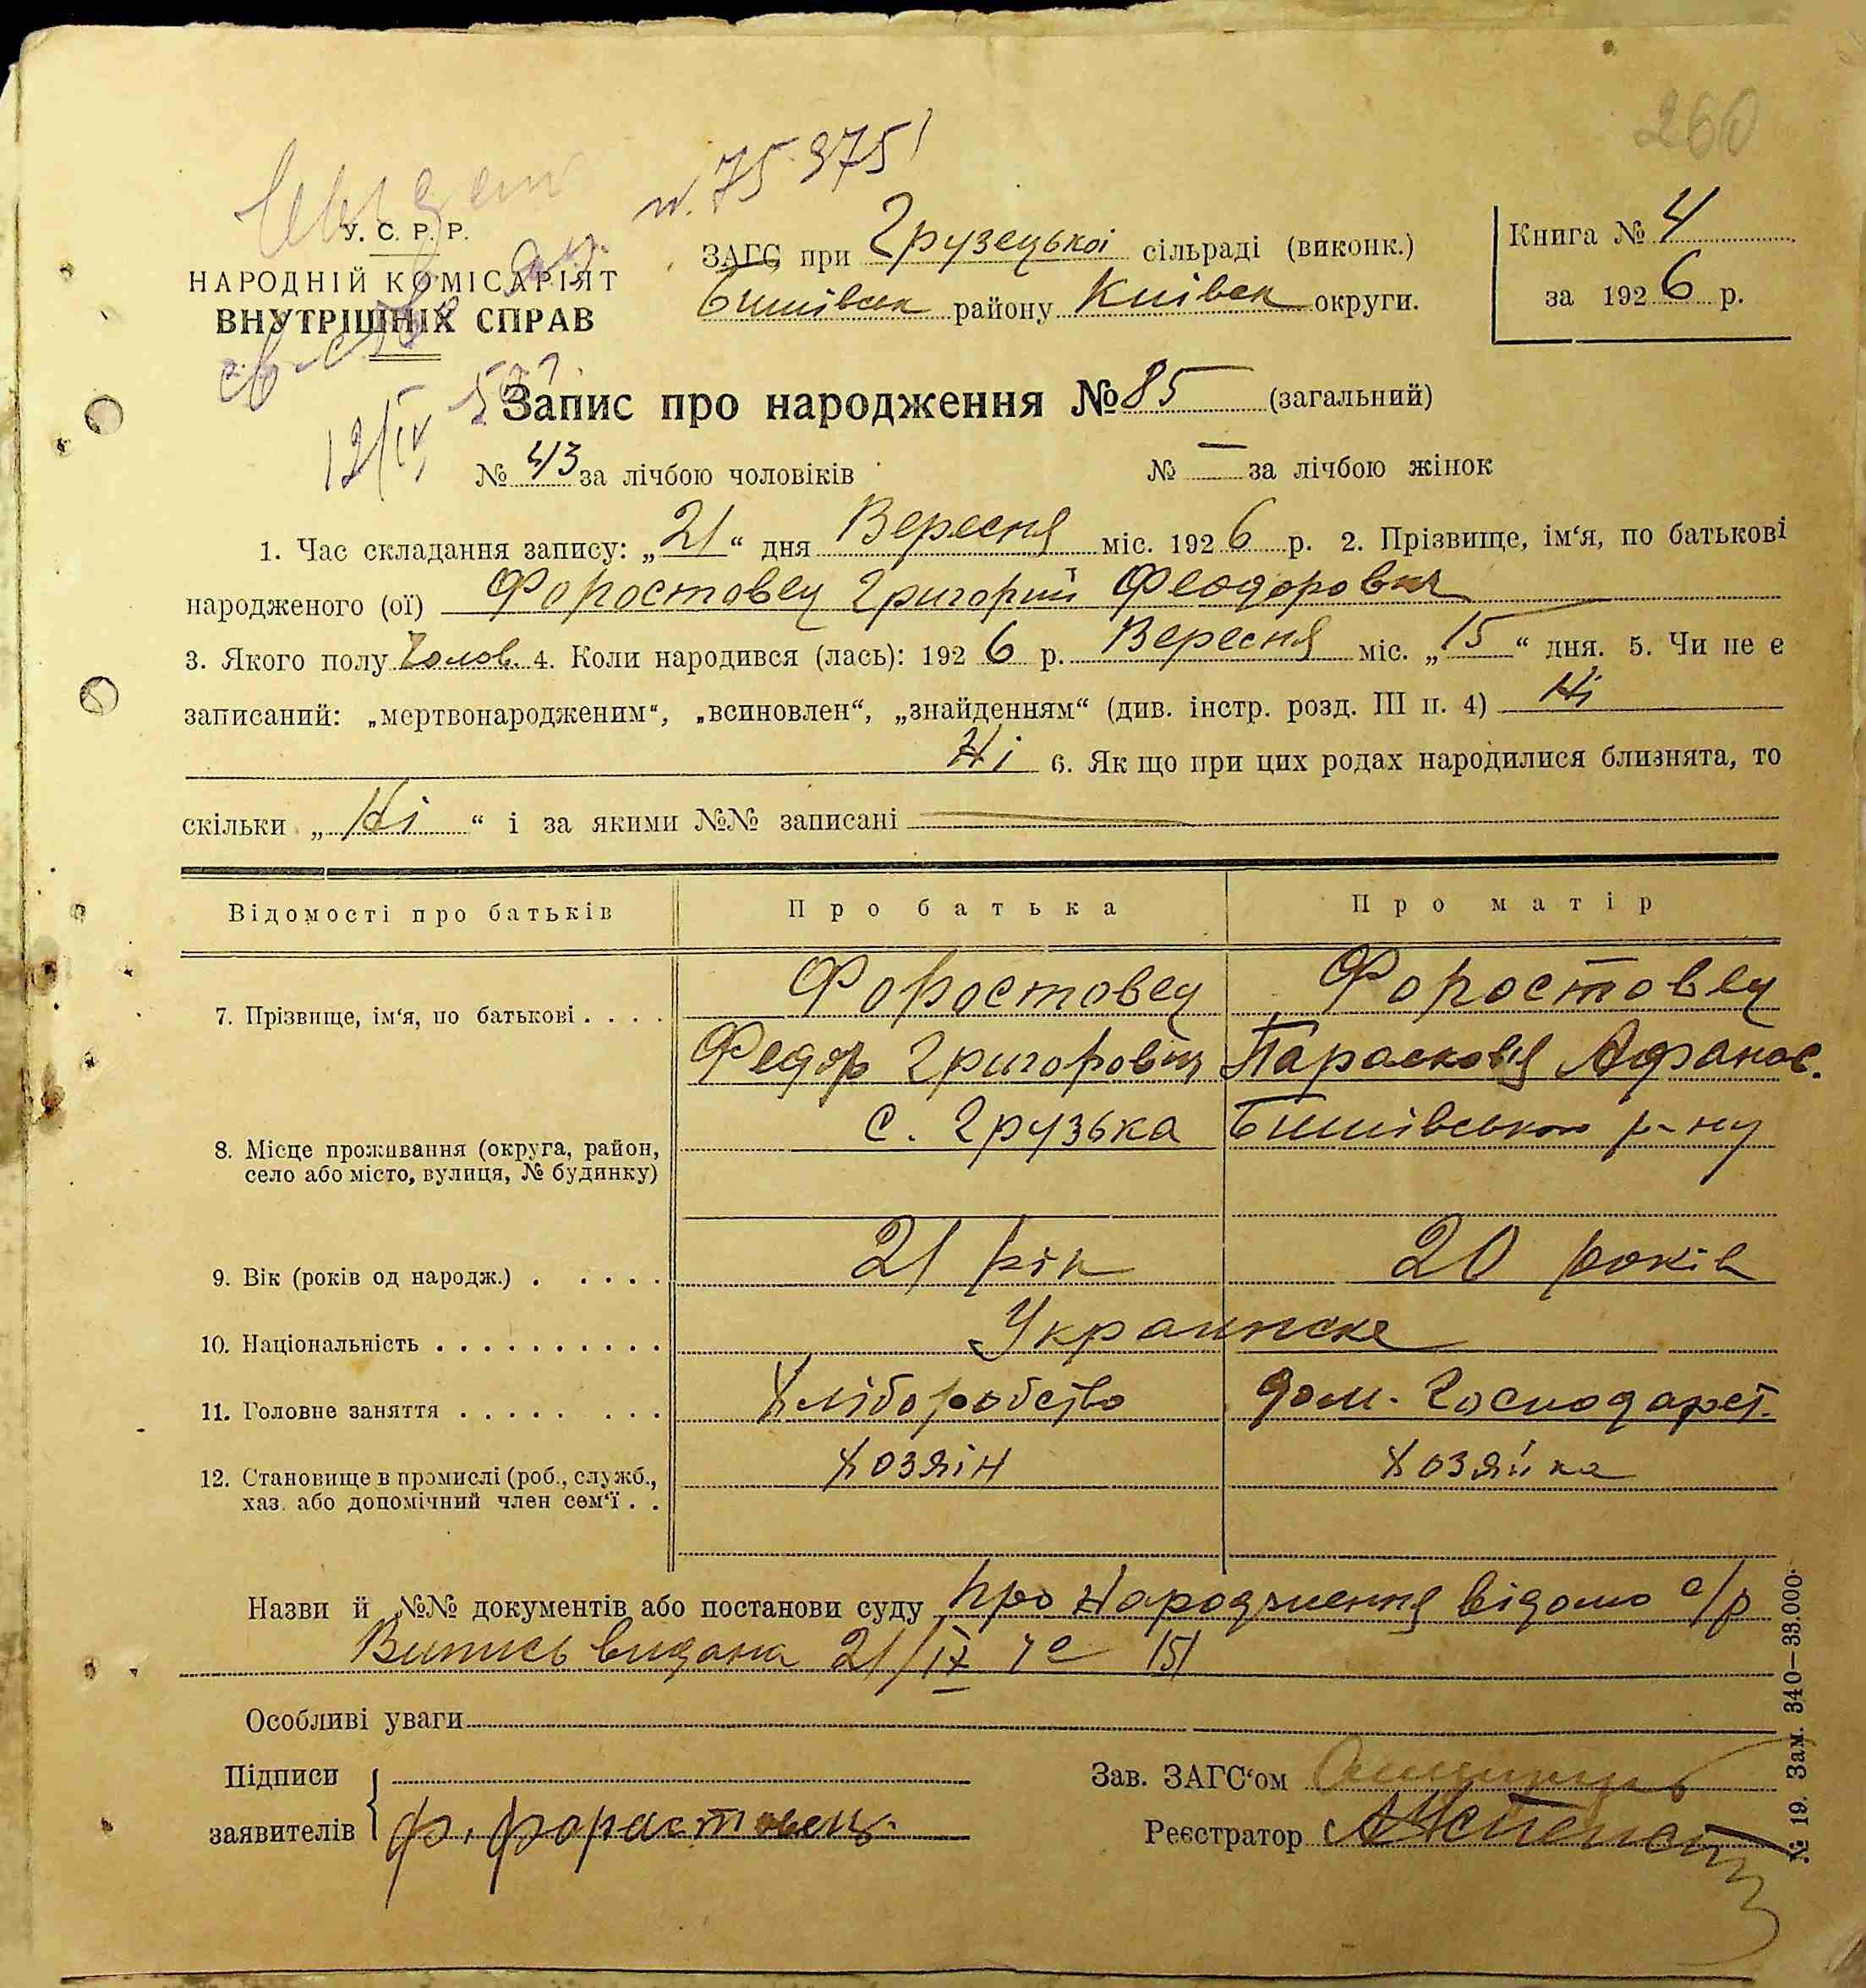 260
75 975
У. С. Р. Р.
НАРОДНІЙ КОМІСАРІЯТ
ВНУТРІШНІХ СПРАВ
ЗАГС при Грузецької сільраді (виконк.)
Бишівськ району Київськ округи.
Книга № 4
за 1926 р.
Запис про народження № 85 (загальний)
12/IV
№ 43 за лічбою чоловіків № — за лічбою жінок
1. Час складання запису: „21“ дня Вересня міс. 1926 р. 2. Прізвище, ім‘я, по батькові
народженого (ої) Форостовец Григорий Феодорович
3. Якого полу Чолов. 4. Коли народився (лась): 1926 р. Вересня міс. „15“ дня. 5. Чи не є
записаний: „мертвонародженим“, „всиновлен“, „знайденням“ (див. інстр. розд. III п. 4) Ні
Ні 6. Як що при цих родах народилися близнята, то
скільки „Ні“ і за якими №№ записані —
Відомості про батьків Про батька Про матір
7. Прізвище, ім‘я, по батькові . . . . Форостовец Форостовец
Федор Григорович Парасковія Афанас.
8. Місце проживання (округа, район, с. Грузька Бишівського р-ну
село або місто, вулиця, № будинку)
9. Вік (років од народж.) . . . . . 21 рік 20 років
10. Національність . . . . . . . . . . Украинске
11. Головне заняття . . . . . . . . Хліборобство дом. Господарст.
12. Становище в промислі (роб., служб., Хозяін Хозяйка
хаз. або допомічний член сем‘ї . .
Назви й №№ документів або постанови суду про Народження відомо с/р
Випись видана 21/IX 151
Особливі уваги
Підписи
заявителів Ф. Форастовець.
Зав. ЗАГС‘ом
Реєстратор
№ 19. Зам. 340—33.000.